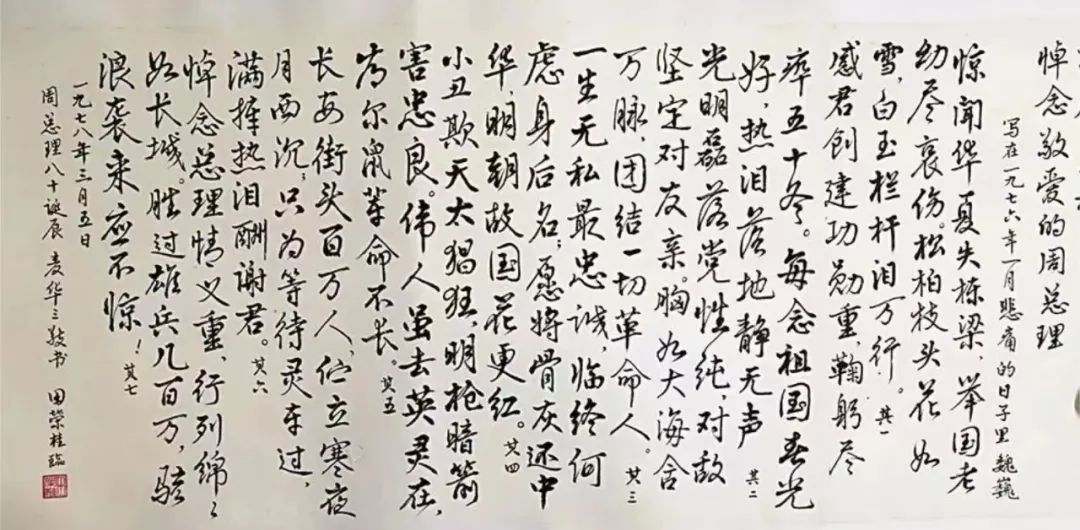 悼念敬爱的周总理
写在一九七六年一月悲痛的日子里 魏巍
惊闻华夏失栋梁，举国老
幼尽哀伤。松柏枝头花如
雪，白玉栏杆泪万行。其一
感君创建功勋重，鞠躬尽
瘁五十冬。每念祖国春光
好，热泪落地静无声 其二
光明磊落党性纯，对敌
坚定对友亲。胸如大海合
万脉，团结一切革命人。其三
一生无私最忠诚，临终何
虑身后名；愿将骨灰还中
华，明朝故国花更红。其四
小丑欺天太猖狂，明枪暗箭
害忠良。伟人虽去英灵在，
为尔鼠辈命不长。其五
长安街头百万人，伫立寒夜
月西沉；只为等待灵车过，
满捧热泪酬谢君。其六
悼念总理情义重，行列绵〻
如长城。胜过雄兵几百万，骇
浪袭来应不惊！其七
一九七八年三月五日
周总理八十诞辰 麦华三敬书 田荣桂临